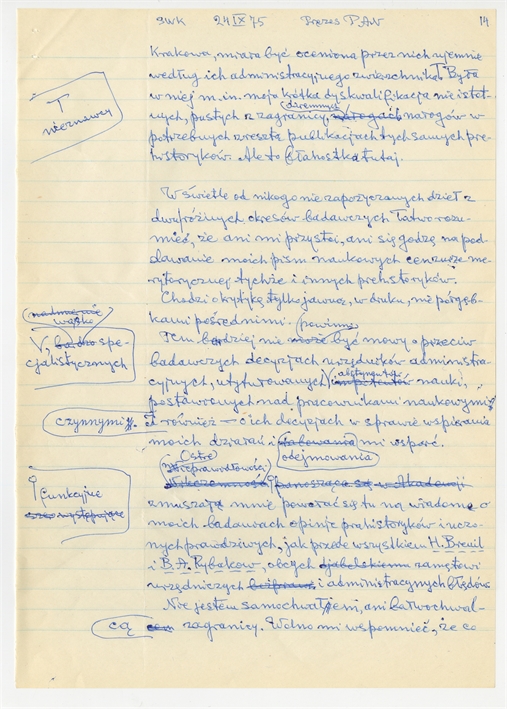 SWK 24 IX 75 Prezes PAN 14
Krakowa, miara być oceniona przez nich ujemnie
według ich administracyjnego zwierzchnika. T Była
w niej m.in. moja krótka dyskwalifikacja nieistot-
nych, pustych z zagranicy, narogów w
potrzebnych zresztą publikacjach tychsamych pre-
historyków. Ale to błahostka tutaj.
T
nieznawcy
W świetle od nikogo nie zapożyczanych dzieł z
dwu różnych okresów badawczych łatwo rozu-
mieć, że ani mi przystoi, ani się godzę na pod-
dawanie moich pism naukowych cenzurze me-
rytorycznej tychże i innych prehistoryków.
Chodzi o krytykę tylko jawną, w druku, nie półgęb-
kami pośrednimi.
powinno
Tem bardziej nie może być mowy o przeciw
badawczych decyzjach urzędników administra-
cyjnych, utytułowanych V nauki,
abstynentów
postawionych nad pracownikami naukowymi
nadmiernie
wąsko
V, bardzo spe-
cjalistycznych
czynnymi
I również — o ich decyzjach w sprawie wspierania
moich działań i odejmowania mi wsparć.
Ostre
Nieprawdłowości
panosząca się w Akademji
zmuszają mnie powołać się tu na wiadome o
moich badawach opinje prahistoryków i uczo-
nych prawdziwych, jak przede wszystkiem H. Breuil
i B. A. Rybakow, obcych zamętowi
urzędniczych i administracyjnych błędów.
funkcyjne
występujące
Nie jestem samochwałem, ani bałwochwal-
cą zagranicy. Wolno mi wspomnieć, że co